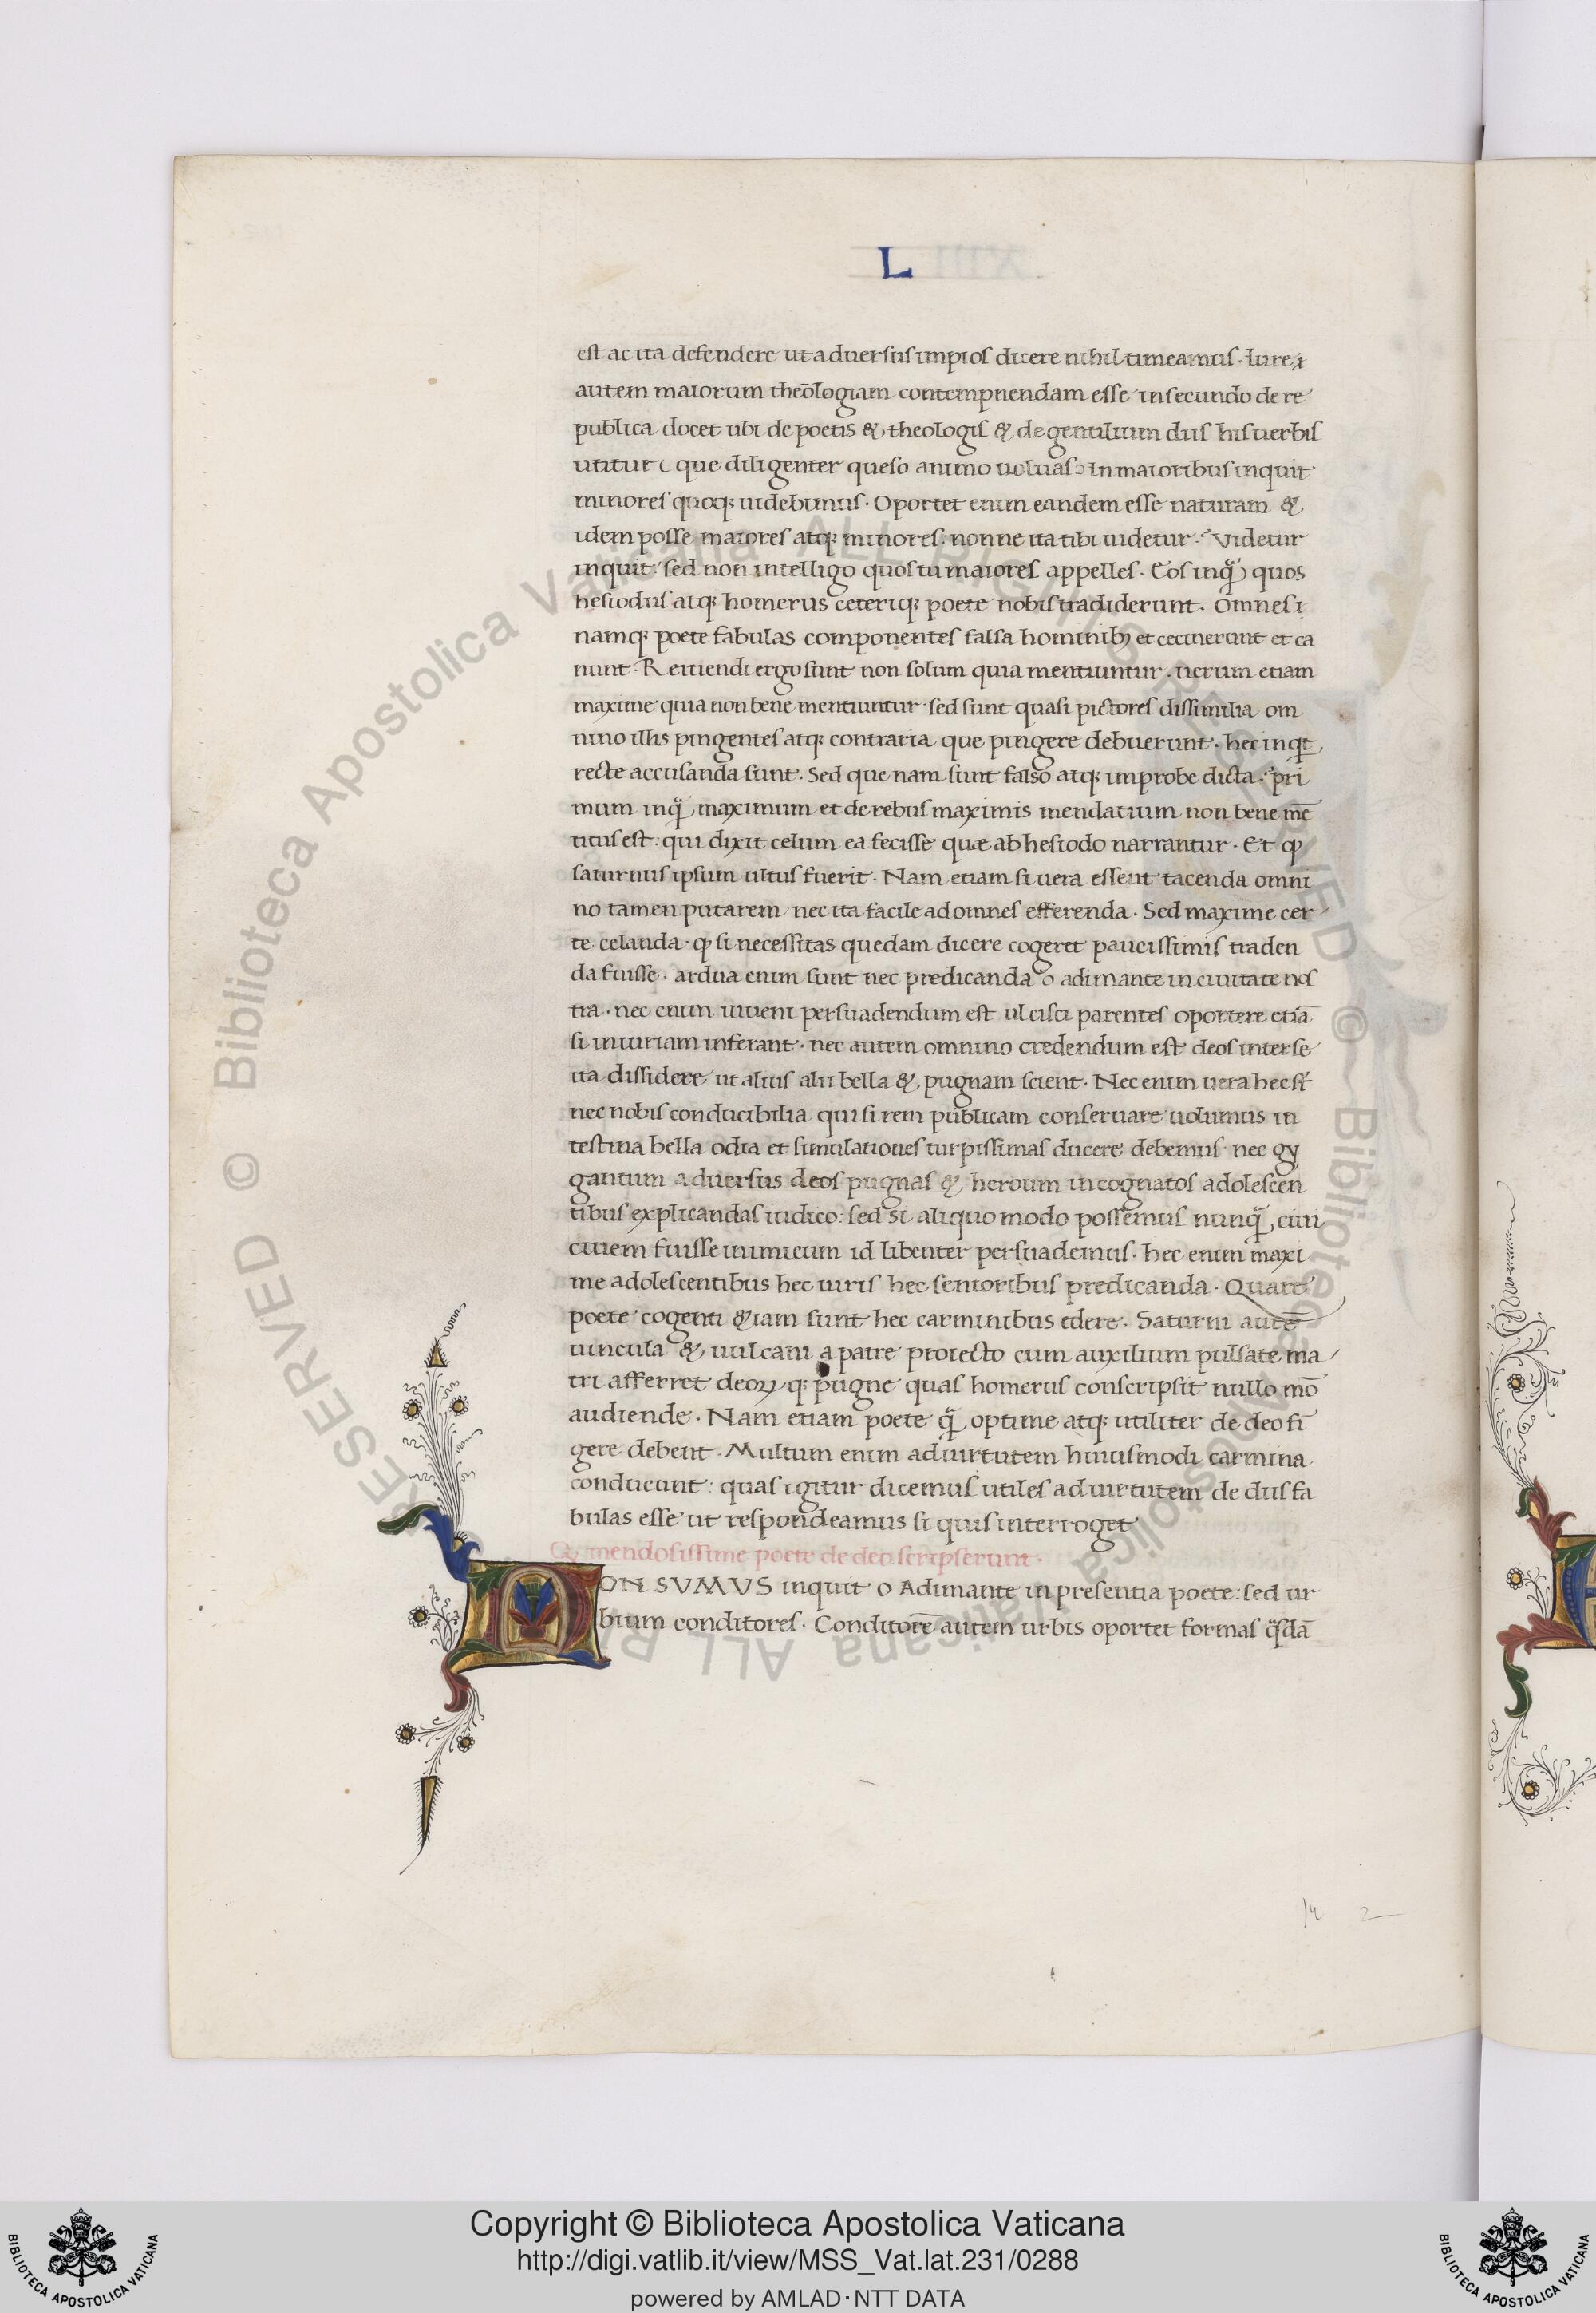 L
est ac ita defendere ut aduersus impios dicere nihil timeamus. Iure
autem maiorum theōlogiam contempnendam esse in secundo de re
publica docet ubi de poetis & theologis & de gentilium diis his uerbis
utitur ( que diligenter queso animo uoluas) In maioribus inquit
minores quoq; uidebimus. Oportet enim eandem esse naturam &
idem posse maiores atq; minores: nonne ita tibi uidetur? Videtur
inquit: sed non intelligo quos tu maiores appelles. Eos inqͣ) quos
hesiodus atq; homerus ceteriq; poete nobis tradiderunt. Omnes i
namq; poete fabulas componentes falsa hominibꝫ et cecinerunt et ca
nunt. Reitiendi ergo sunt non solum quia mentiuntur. uerum etiam
maxime quia non bene mentiuntur sed sunt quasi pictores dissimilia om
nino illis pingentes atq; contraria que pingere debuerunt. hec inqt
recte accusanda sunt. Sed que nam sunt falso atq; improbe dicta? pri
mum inqͣ maximum et de rebus maximis mendatium non bene mē
titus est: qui dixit celum ea fecisse quæ ab hesiodo narrantur. Et ꝙ
saturnus ipsum ultus fuerit. Nam etiam si uera essent tacenda omni
no tamen putarem nec ita facile ad omnes efferenda. Sed maxime cer
te celanda. ꝙ si necessitas quedam dicere cogeret paucissimis traden
da fuisse. ardua enim sunt nec predicanda o adimante in ciuitate nos
tra. nec enim iuueni persuadendum est ulcisci parentes oportere etiā
si iniuriam inferant. nec autem omnino credendum est deos inter se
ita dissidere ut alius alii bella & pugnam scient. Nec enim uera hec st̄
nec nobis conducibilia qui si rem publicam conseruare uolumus in
testina bella odia et simulationes turpissimas ducere debemus nec gy
gantum aduersus deos pugnas & heroum in cognatos adolescen
tibus explicandas iudico: sed si aliquo modo possemus nunqͣ ciui
ciuem fuisse inimicum id libenter persuademus. hec enim maxi
me adolescentibus hec uiris hec senioribus predicanda. Quare
poete cogenti &iam sunt hec carminibus edere. Saturni autē
uincula & uulcani a patre proiecto cum auxilium pulsate ma
tri afferret deoꝝ q; pugne quas homerus conscripsit nullo mō
audiende. Nam etiam poete qͣ optime atq; utiliter de deo fi
gere debent. Multum enim ad uirtutem huiusmodi carmina
conducunt: quas igitur dicemus utiles ad uirtutem de diis fa
bulas esse ut respondeamus si quis interroget
Qꝫ mendosissime poete de deo scripserunt.
NON SVMVS inquit o Adimante in presentia poete: sed ur
bium conditores. Conditorē autem urbis oportet formas qͣsdā
14 2
Copyright © Biblioteca Apostolica Vaticana
http://digi.vatlib.it/view/MSS_Vat.lat.231/0288
powered by AMLAD·NTT DATA